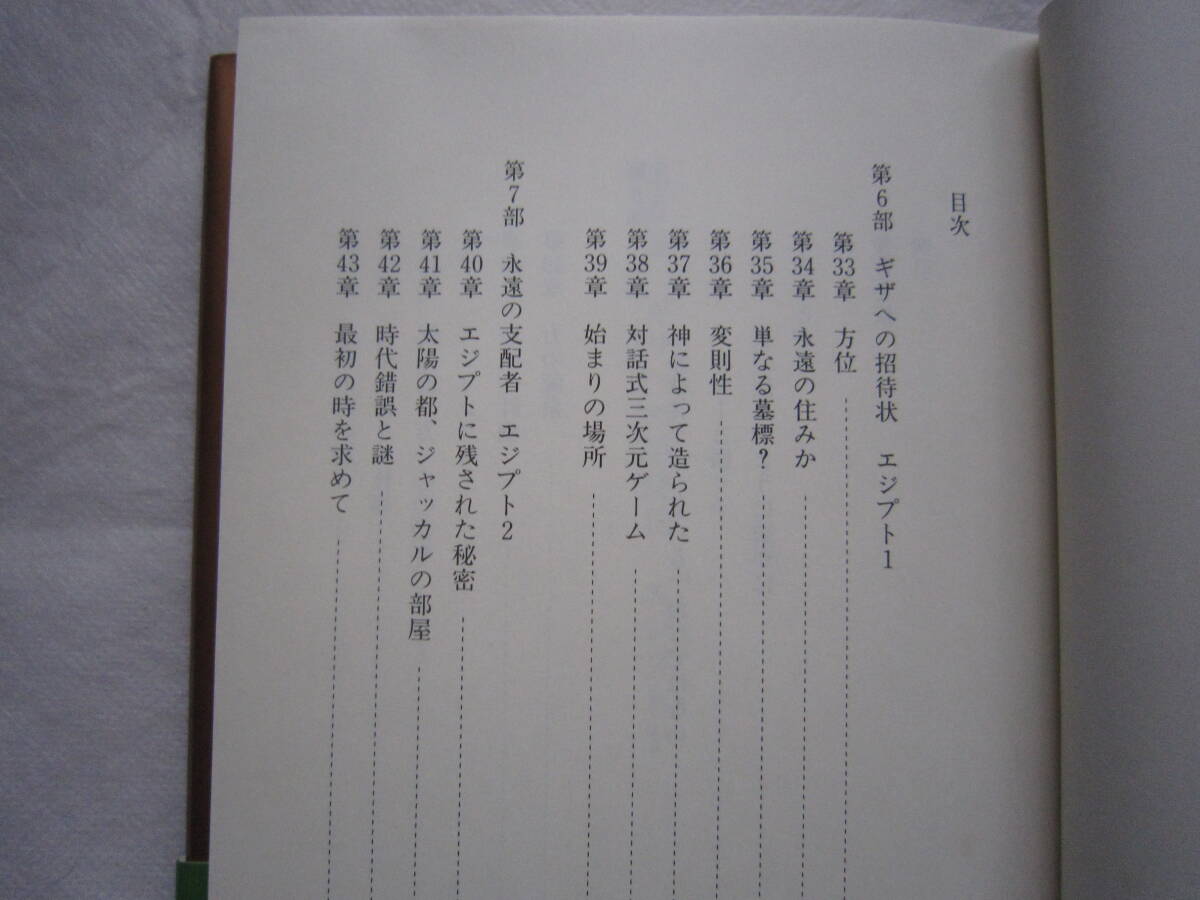 目次
第6部 ギザへの招待状 エジプト1
第33章 方位
第34章 永遠の住みか
第35章 単なる墓標?
第36章 変則性
第37章 神によって造られた
第38章 対話式三次元ゲーム
第39章 始まりの場所
第7部 永遠の支配者 エジプト2
第40章 エジプトに残された秘密
第41章 太陽の都、ジャッカルの部屋
第42章 時代錯誤と謎
第43章 最初の時を求めて